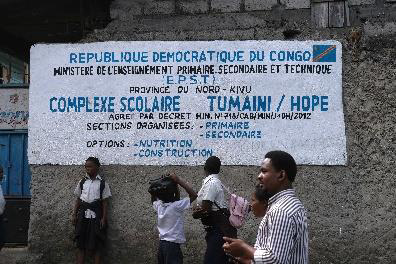 REPUBLIQUE DEMOCRATIQUE DU CONGO
MINISTERE DE L'ENSEIGNEMENT PRIMAIRE, SECONDAIRE ET TECHNIQUE
(E.P.S.T)
PROVINCE DU NORD-KIVU
COMPLEXE SCOLAIRE TUMAINI / HOPE
AGREE PAR DECRET MIN. N°718/CAB/MIN/ /2012
SECTIONS ORGANISEES: - PRIMAIRE
- SECONDAIRE
OPTIONS: - NUTRITION
- CONSTRUCTION